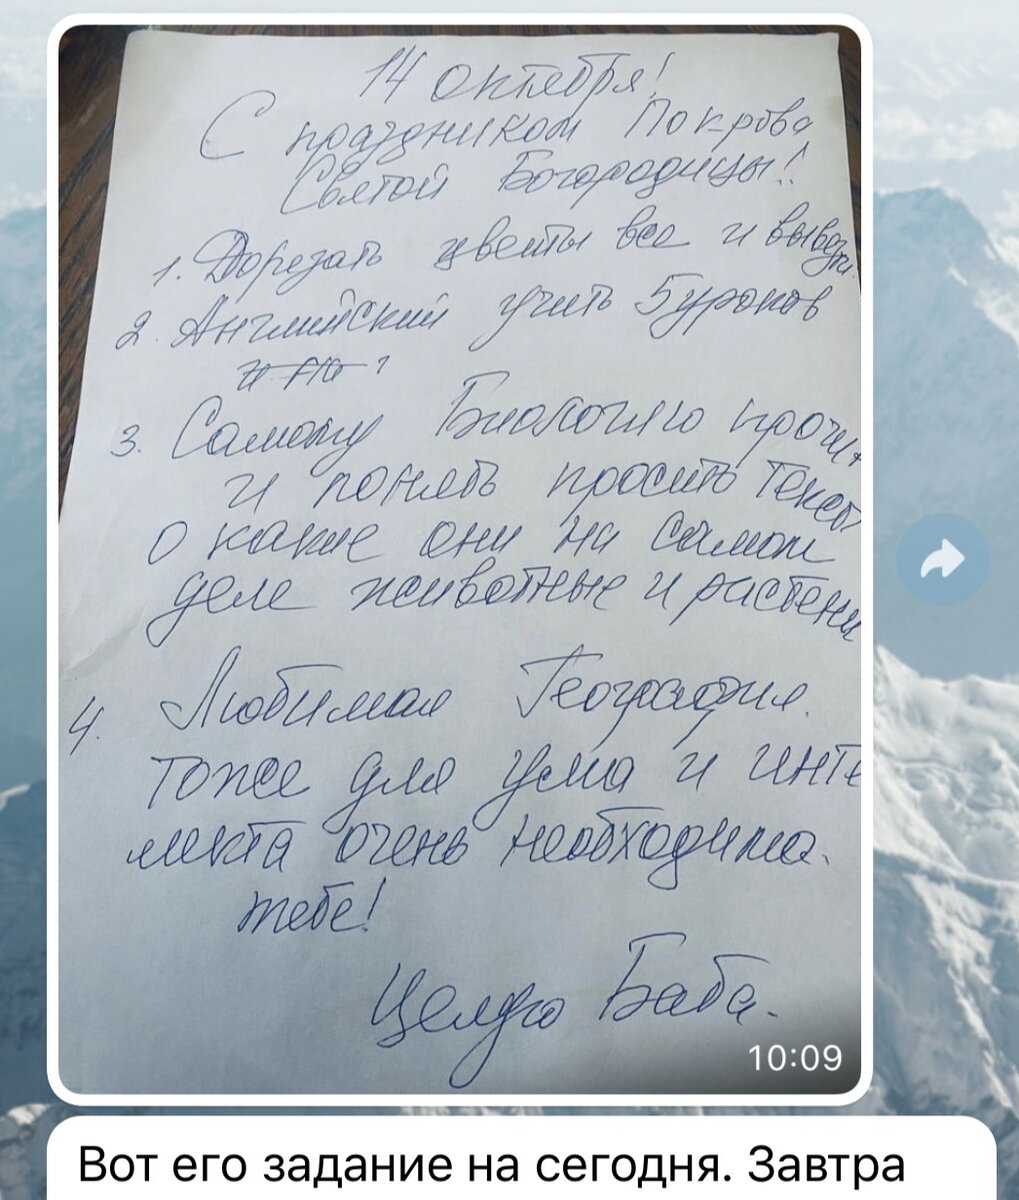 14 октября!
С праздником Покрова
Святой Богородицы!
1. Дорезать цветы все и вывезти
2. Английский учить
3. Самому Биологию прочит
и понять просить текст
о какие они на самом
деле животные и растени
4. Любимая География.
тоже для ума и инте
лекта очень необходима.
тебе!
Целую Баба.
10:09
Вот его задание на сегодня. Завтра